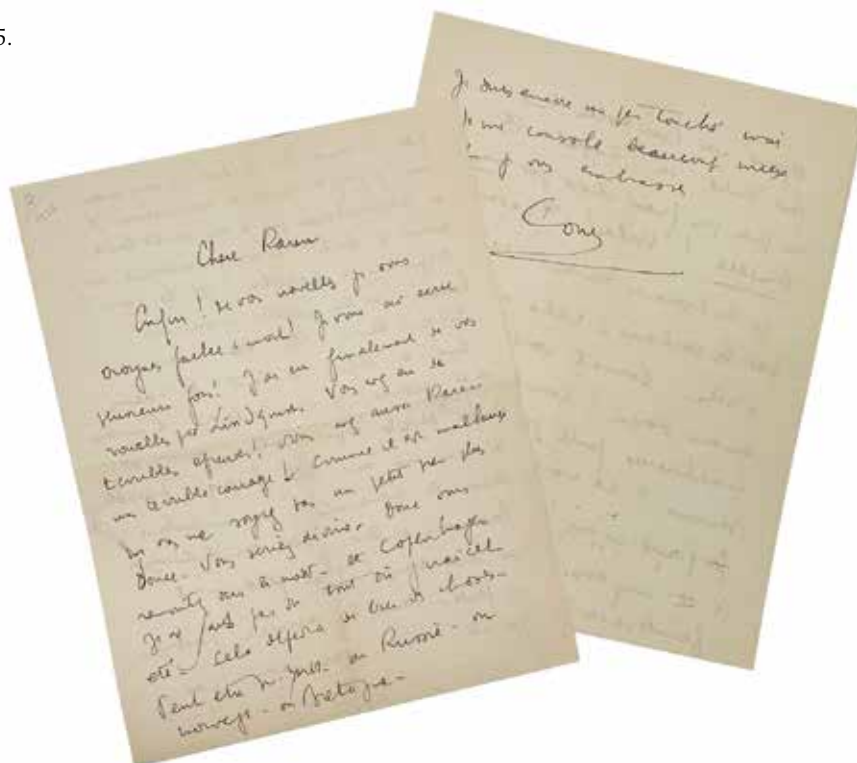 5.
Chere Karen
Enfin! de vos nouvelles je vous
croyais fachee à mort! Je vous ai
plusieurs fois! J'ai eu finalement de vos
nouvelles par Lindquist. Vous avez eu de
terribles épreuves! vous avez aussi Karen
un terrible courage! Comme il est malheureux
que vous ne soyez pas un petit peu plus
douce. Vous seriez divine. Donc vous
remontez sous à - et Copenhague
Je ne sais pas du tout où j'irai cet
été - Cela dépend de tas de choses -
Peut etre N. York - ou Russie - ou
Norvege - ou Bretagne -
Je suis encore un peu touché mais
je me console beaucoup mieux
je vous embrasse